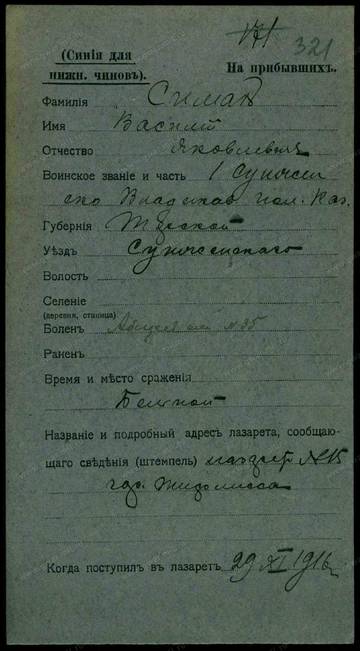 171
321
(Синія для
нижн. чиновъ).
На прибывшихъ.
Фамилія Симак
Имя Василій
Отчество Яковлевич
Воинское званіе и часть 1 Сунжен
ско Владикав пол. Каз.
Губернія Терской
Уѣздъ Сунженскаго
Волость
Селеніе
(деревня, станица)
Боленъ №35
Раненъ
Время и мѣсто сраженія
Названіе и подробный адресъ лазарета, сообщаю-
щаго свѣдѣнія (штемпель) лазарет №
гор.
Когда поступилъ въ лазаретъ 29 XI 1916 г.